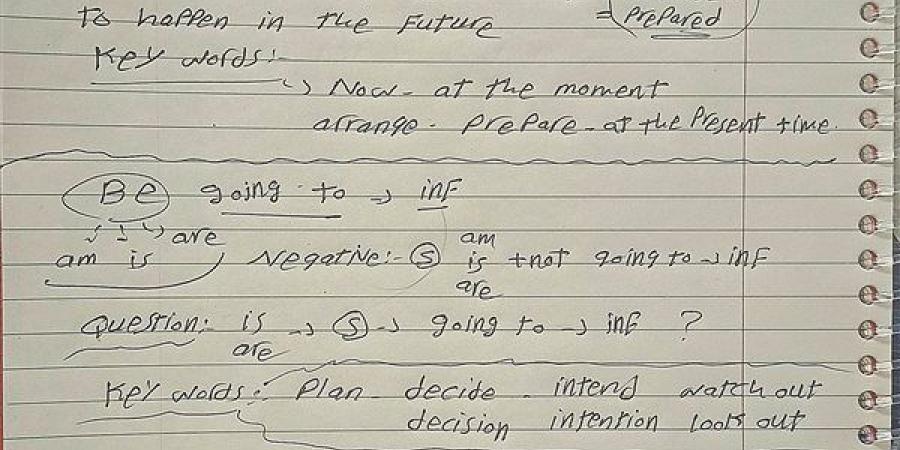 to happen in the Future = Prepared
Key words:-
→ Now - at the moment
arrange - prepare - at the present time.
Be going to → inf
am is are
Negative:- (S) am is are +not going to → inf
Question:- is are → (S) → going to → inf ?
Key words:- Plan - decide - intend watch out
decision intention look out